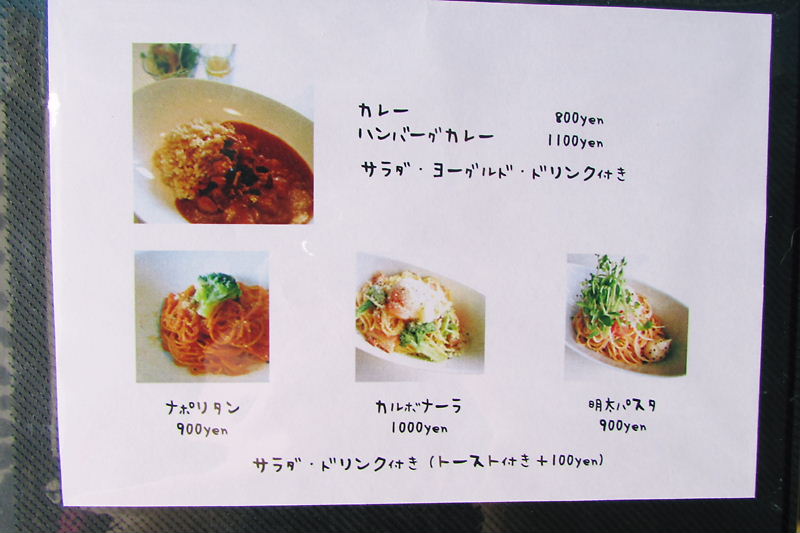 カレー 800yen
ハンバーグカレー 1100yen
サラダ・ヨーグルド・ドリンク付き
ナポリタン
900yen
カルボナーラ
1000yen
明太パスタ
900yen
サラダ・ドリンク付き(トースト付き+100yen)